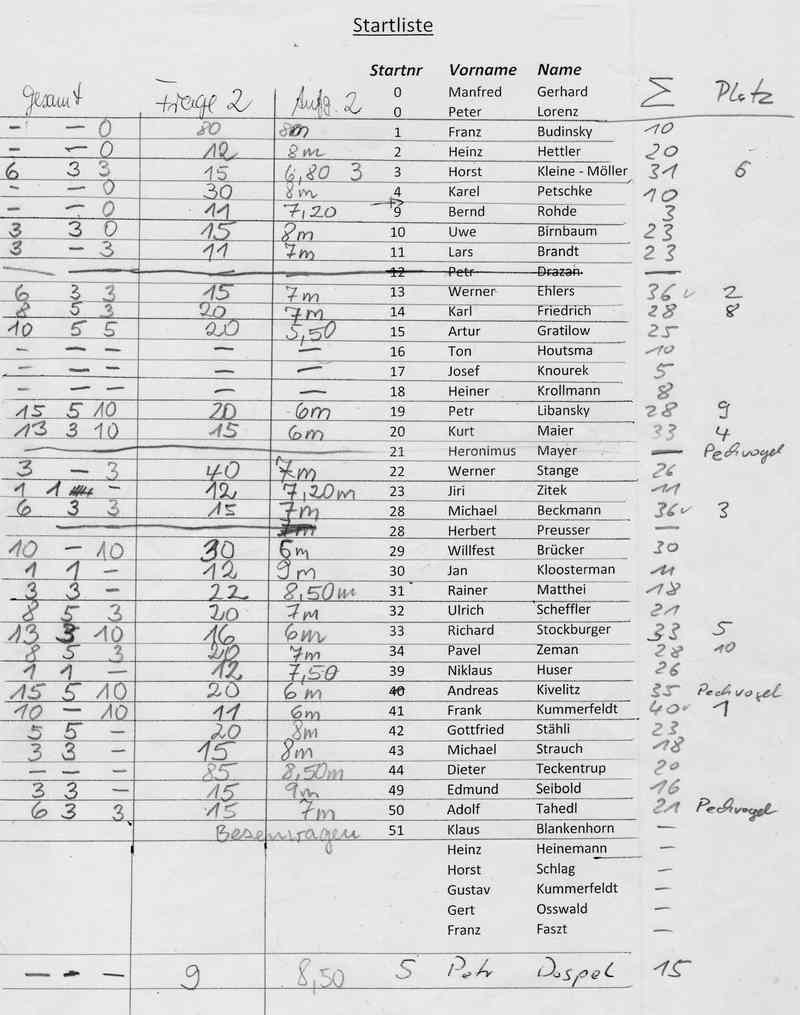 Startliste
Startnr Vorname Name
gesamt Frage 2 Aufg. 2 0 Manfred Gerhard Σ Platz
0 Peter Lorenz
- - 0 80 8m 1 Franz Budinsky 10
- - 0 12 8m 2 Heinz Hettler 20
6 3 3 15 6,80 3 3 Horst Kleine - Möller 31 6
- - 0 30 8m 4 Karel Petschke 10
- - 0 11 7,20 9 Bernd Rohde 3
3 3 0 15 8m 10 Uwe Birnbaum 23
3 - 3 11 7m 11 Lars Brandt 23
12 Petr Drazan —
6 3 3 15 7m 13 Werner Ehlers 36 ✓ 2
8 5 3 20 7m 14 Karl Friedrich 28 8
10 5 5 20 5,50 15 Artur Gratilow 25
- - - - - 16 Ton Houtsma 10
- - - - - 17 Josef Knourek 5
- - - - - 18 Heiner Krollmann 8
15 5 10 20 6m 19 Petr Libansky 28 9
13 3 10 15 6m 20 Kurt Maier 33 4
21 Heronimus Mayer — Pechvogel
3 - 3 40 7m 22 Werner Stange 26
1 1 - 12 7,20m 23 Jiri Zitek 11
6 3 3 15 7m 28 Michael Beckmann 36 ✓ 3
28 Herbert Preusser —
10 - 10 30 6m 29 Willfest Brücker 30
1 1 - 12 9m 30 Jan Kloosterman 11
3 3 - 22 8,50m 31 Rainer Matthei 18
8 5 3 20 7m 32 Ulrich Scheffler 21
13 3 10 16 6m 33 Richard Stockburger 33 5
8 5 3 20 7m 34 Pavel Zeman 28 10
1 1 - 12 7,50 39 Niklaus Huser 26
15 5 10 20 6m 40 Andreas Kivelitz 35 Pechvogel
10 - 10 11 6m 41 Frank Kummerfeldt 40 ✓ 1
5 5 - 20 8m 42 Gottfried Stähli 23
3 3 - 15 8m 43 Michael Strauch 18
- - - 85 8,50m 44 Dieter Teckentrup 20
3 3 - 15 9m 49 Edmund Seibold 16
6 3 3 15 7m 50 Adolf Tahedl 21 Pechvogel
Besenwagen 51 Klaus Blankenhorn —
Heinz Heinemann —
Horst Schlag —
Gustav Kummerfeldt —
Gert Osswald —
Franz Faszt —
- - - 9 8,50 5 Petr Dospel 15